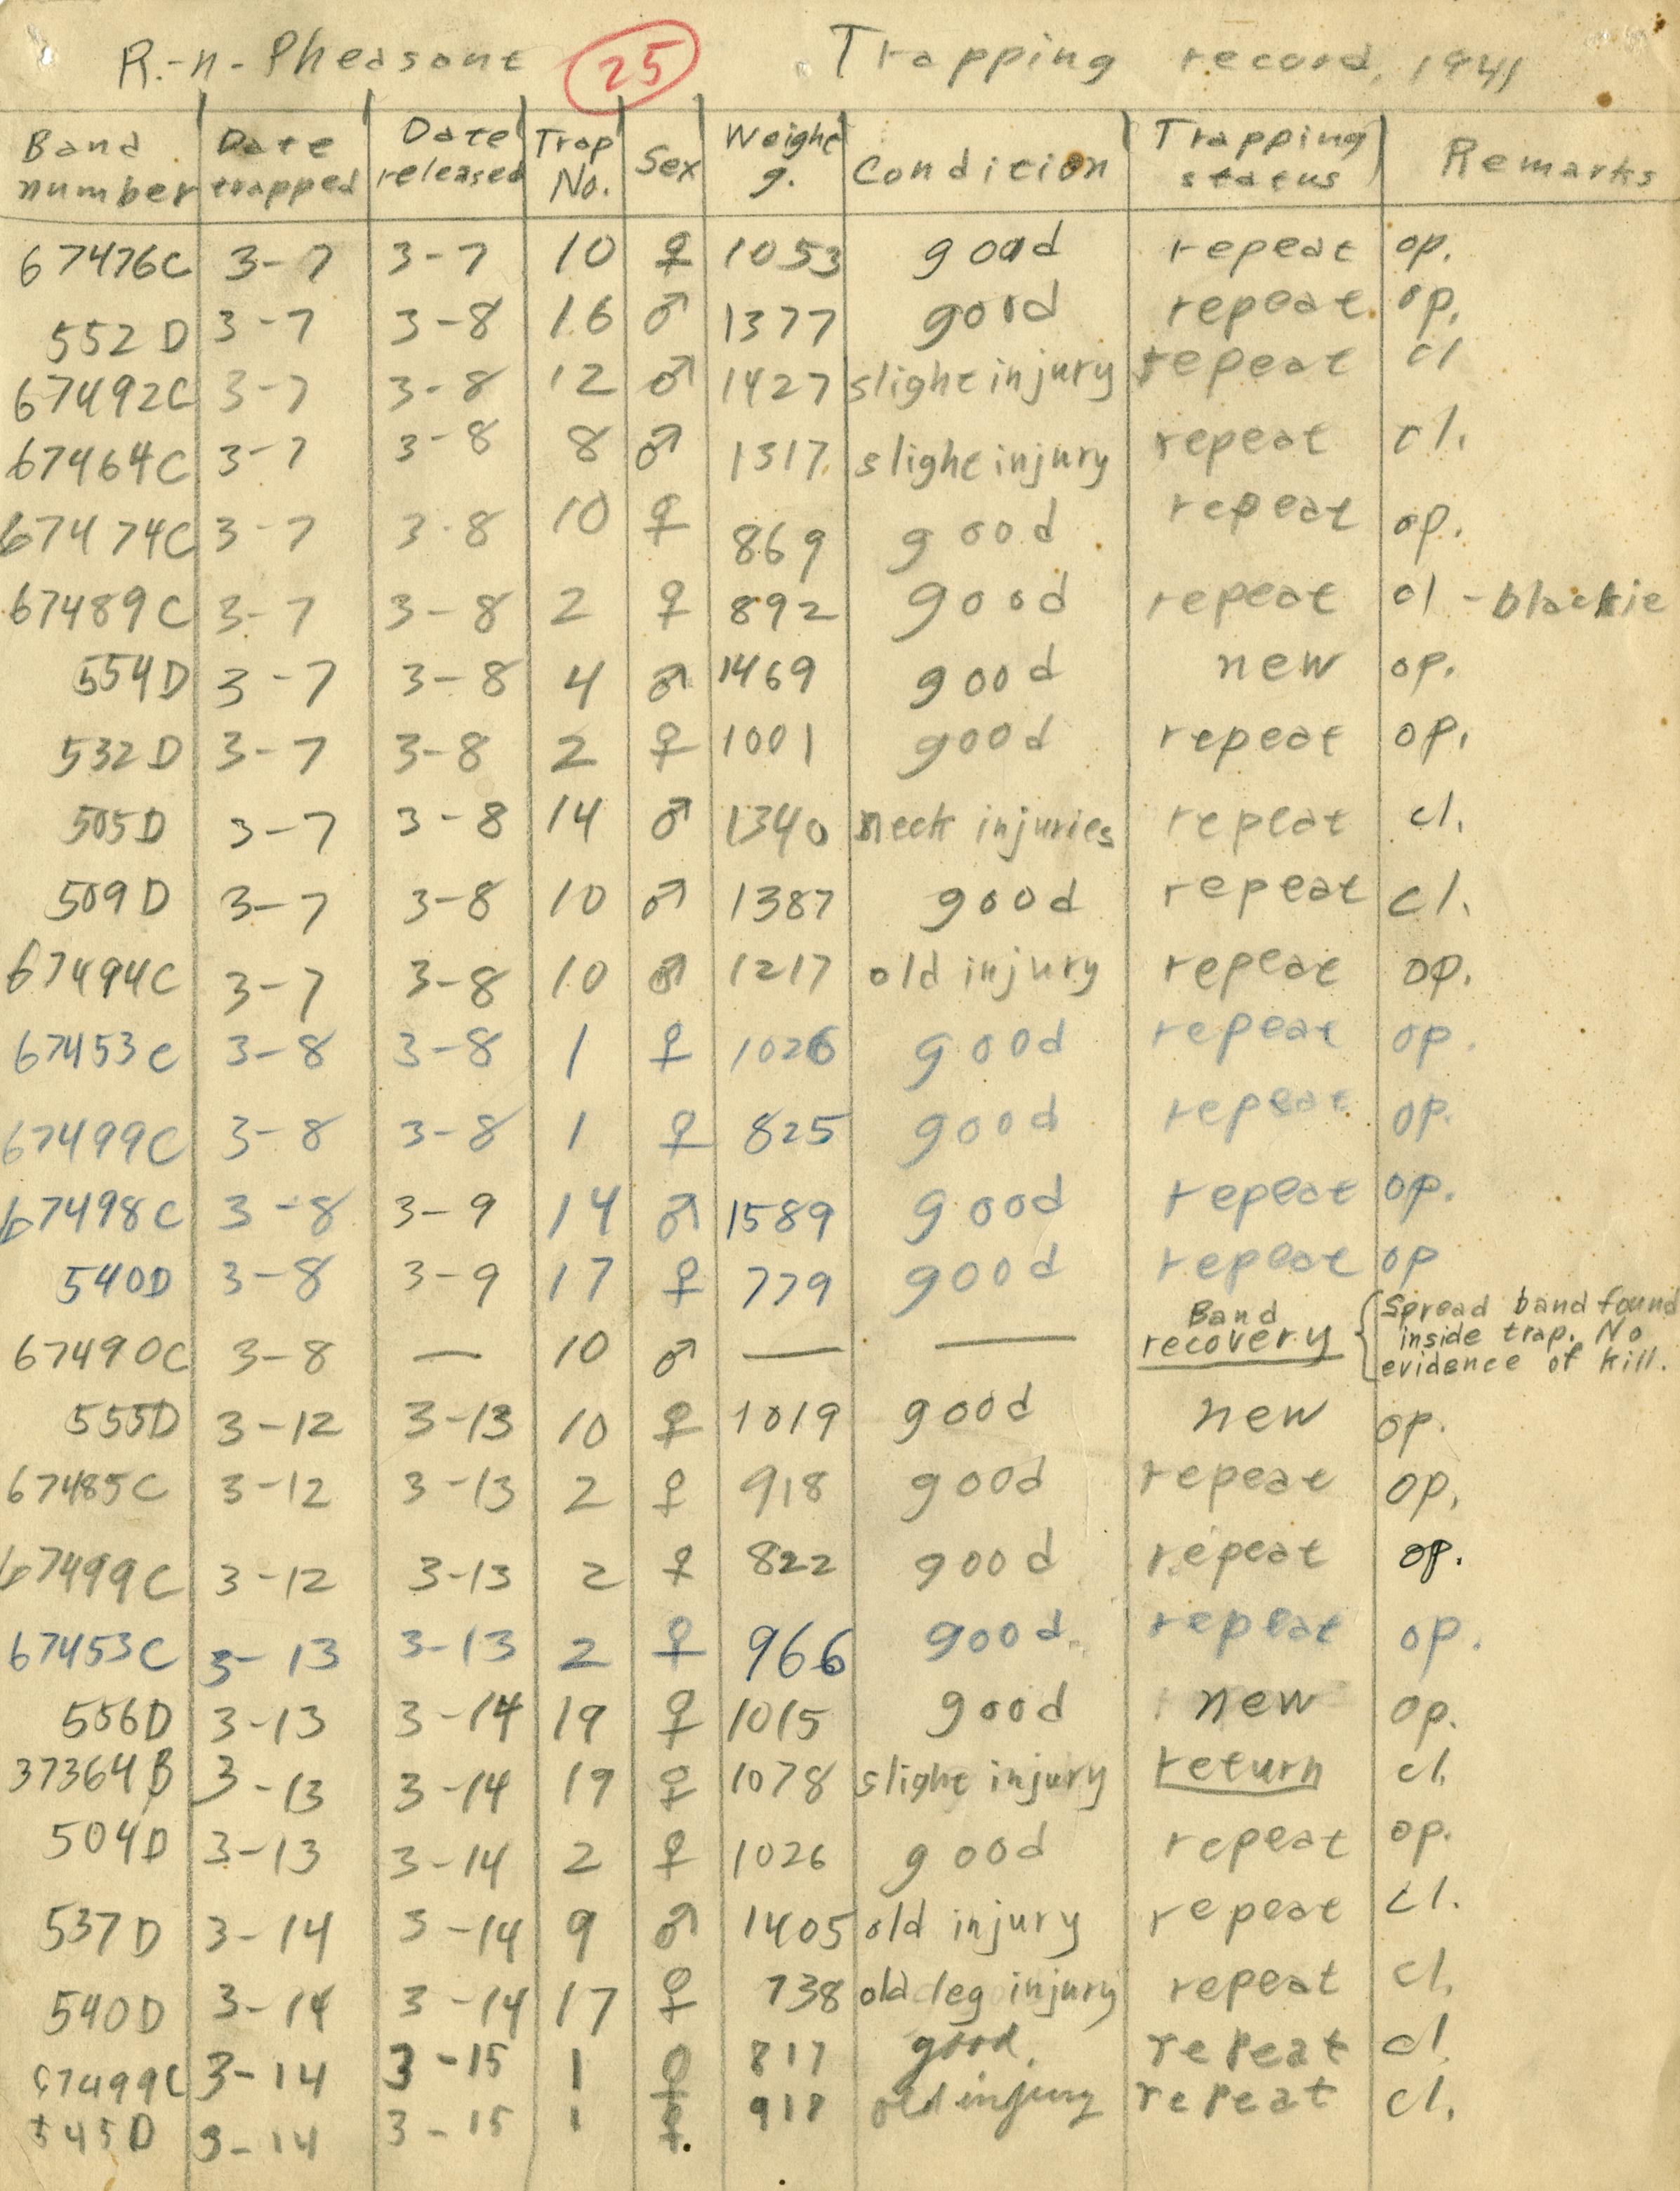 R.-n-Pheasant 25 Trapping record, 1941
Band number Date trapped Date released Trap No. Sex Weight g. Condition Trapping status Remarks
67476C 3-7 3-7 10 ♀ 1053 good repeat op.
552D 3-7 3-8 16 ♂ 1377 good repeat. op.
67492C 3-7 3-8 12 ♂ 1427 slight injury repeat cl
67464C 3-7 3-8 8 ♂ 1317 slight injury repeat cl.
67474C 3-7 3-8 10 ♀ 869 good repeat op.
67489C 3-7 3-8 2 ♀ 892 good repeat cl - blackie
554D 3-7 3-8 4 ♂ 1469 good new op.
532D 3-7 3-8 2 ♀ 1001 good repeat op.
505D 3-7 3-8 14 ♂ 1340 neck injuries repeat cl.
509D 3-7 3-8 10 ♂ 1387 good repeat cl.
67494C 3-7 3-8 10 ♂ 1217 old injury repeat op.
67453C 3-8 3-8 1 ♀ 1026 good repeat op.
67499C 3-8 3-8 1 ♀ 825 good repeat op.
67498C 3-8 3-9 14 ♂ 1589 good repeat op.
540D 3-8 3-9 17 ♀ 779 good repeat op
67490C 3-8 — 10 ♂ — — Band recovery { Spread band found inside trap. No evidence of kill.
555D 3-12 3-13 10 ♀ 1019 good new op.
67485C 3-12 3-13 2 ♀ 918 good repeat op.
67499C 3-12 3-13 2 ♀ 822 good repeat op.
67453C 3-13 3-13 2 ♀ 966 good repeat op.
556D 3-13 3-14 19 ♀ 1015 good new op.
37364B 3-13 3-14 19 ♀ 1078 slight injury return cl.
504D 3-13 3-14 2 ♀ 1026 good repeat op.
537D 3-14 3-14 9 ♂ 1405 old injury repeat cl.
540D 3-14 3-14 17 ♀ 738 old leg injury repeat cl.
67499C 3-14 3-15 1 ♀ 817 good. repeat cl.
545D 3-14 3-15 1 ♀ 918 old injury repeat cl.